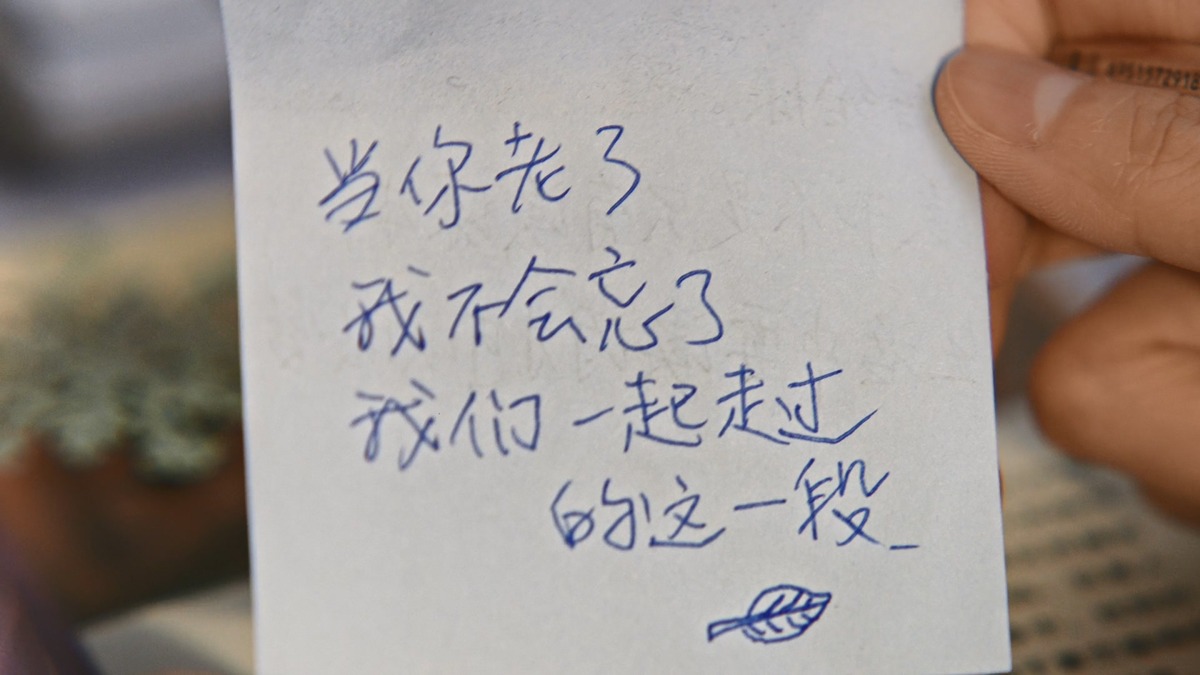 当你老了
我不会忘了
我们一起走过
的这一段_